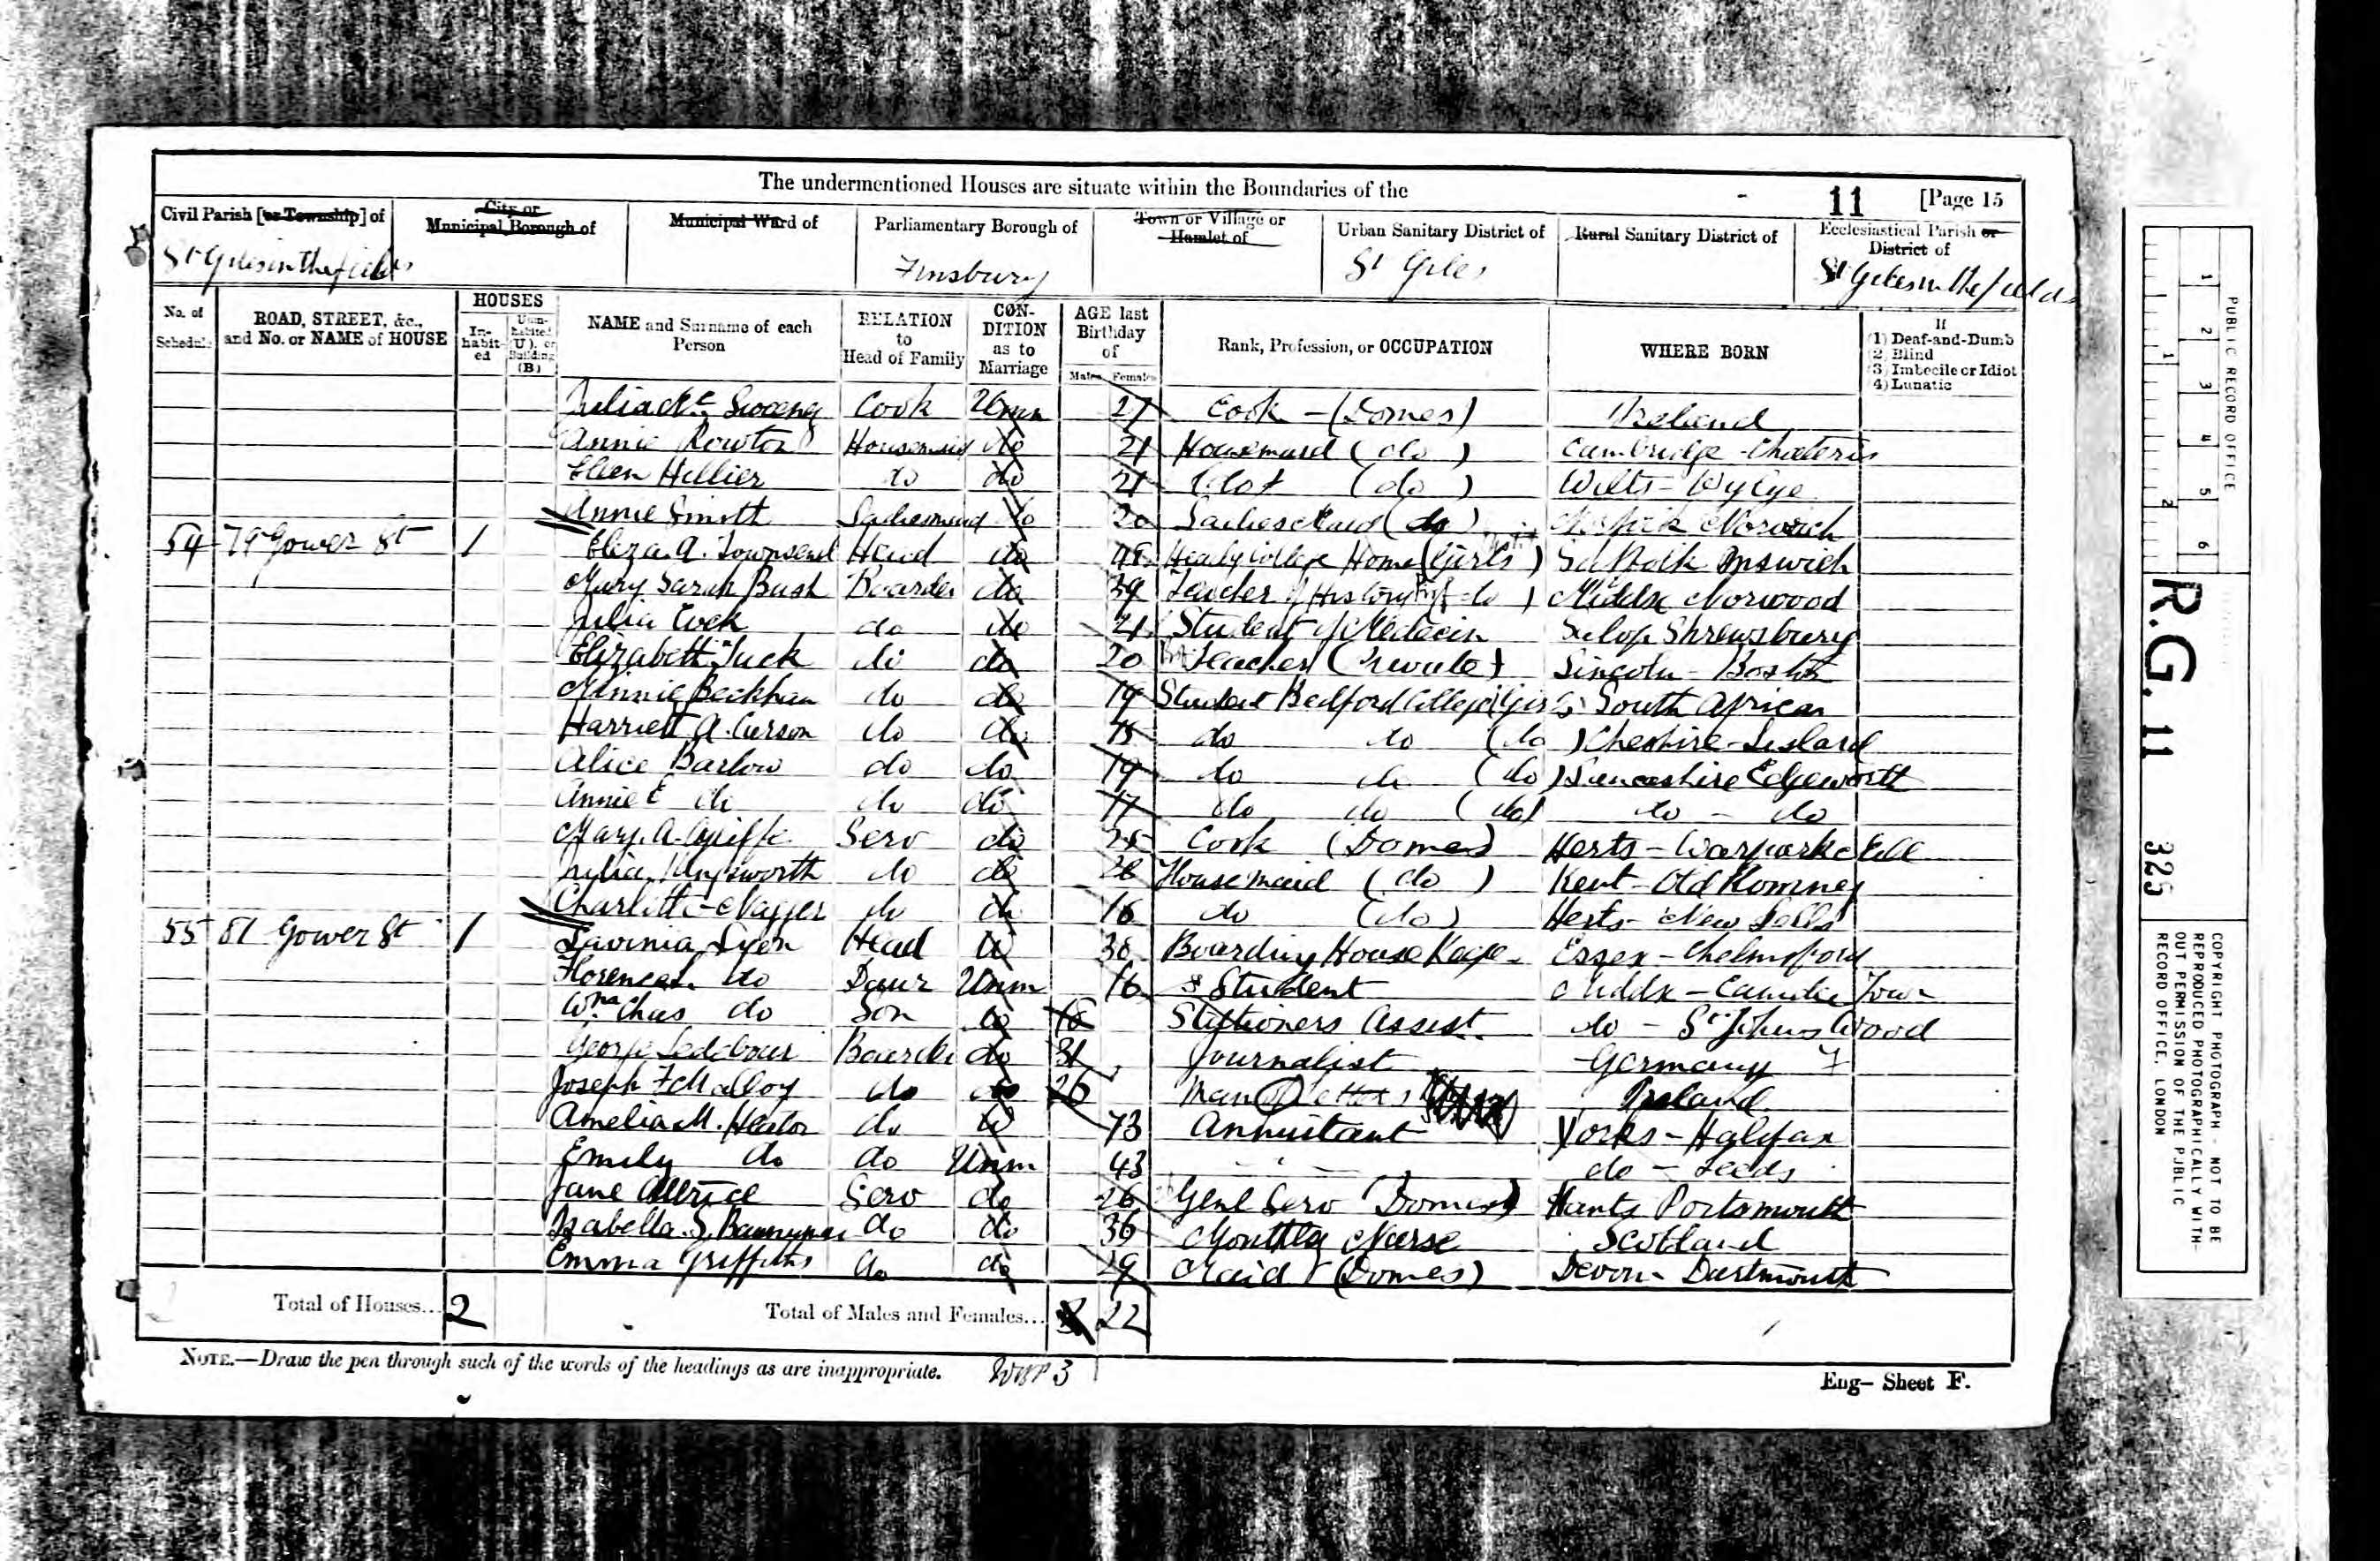 The undermentioned Houses are situate within the Boundaries of the
11 [Page 15
Civil Parish [or Township] of
City or Municipal Borough of
Municipal Ward of
Parliamentary Borough of
Town or Village or Hamlet of
Urban Sanitary District of
Rural Sanitary District of
Ecclesiastical Parish or District of
St Giles in the fields
Finsbury
St Giles
St Giles in the fields
No. of Schedule
ROAD, STREET, &c., and No. or NAME of HOUSE
HOUSES
In-habit-ed
Unin-habited (U), or Building (B)
NAME and Surname of each Person
RELATION to Head of Family
CON-DITION as to Marriage
AGE last Birthday of
Males Females
Rank, Profession, or OCCUPATION
WHERE BORN
If
(1) Deaf-and-Dumb
(2) Blind
(3) Imbecile or Idiot
(4) Lunatic
Julia Sweeny Cook Unm 27 Cook - (Domes) Ireland
Annie Rowton Housemaid do 21 Housemaid (do) Cambridge - Chateris
Ellen Hillier do do 21 (do) Wilts - Wylye
Annie Smith do 20 (do) Norwich
54 79 Gower St 1 Eliza A. Townsend Head do College Home (Girls) Ipswich
Mary Sarah Bush Boarder do 39 Teacher of History do Middx Norwood
Julia Cock do do 21 Student of Medecin Salop Shrewsbury
Elizabeth Tuck do do 20 Teacher (Private) Lincoln - Boston
Minnie Beckham do do 19 Student Bedford College (Girls) South African
Harriett A. Curson do do 18 do do (do) Cheshire -
Alice Barlow do do 19 do do (do) Lancashire Edgeworth
Annie E do do do 17 do do (do) do - do
Mary A. Serv do 25 Cook (Domes) Herts -
Julia do do 28 Housemaid (do) Kent - Old Romney
Charlotte do do 16 do (do) Herts - New
55 81 Gower St 1 Lavinia Lyon Head W 38 Boarding House Keepr - Essex - Chelmsford
do Daur Unm 16 Student Middx - Camden Town
Wm Chas do Son do 18 Stationers Assist. do - St Johns Wood
George Ledebour Boarder do 31 Journalist Germany
Joseph F Malloy do do 26 Man of letters Ireland
Amelia M. Heator do W 73 Annuitant Yorks - Halifax
Emily do do Unm 43 do - Leeds
Jane Serv do 26 Genl Serv (Domes) Hants Portsmouth
Isabella S. do do 36 Monthly Nurse Scotland
Emma Griffiths do do 29 Maid (Domes) Devon - Dartmouth
Total of Houses... 2
Total of Males and Females... 22
NOTE.—Draw the pen through such of the words of the headings as are inappropriate.
3
Eng— Sheet F.
PUBLIC RECORD OFFICE
1 2 3 4 5 6
1 2
R.G. 11 325
COPYRIGHT PHOTOGRAPH - NOT TO BE
REPRODUCED PHOTOGRAPHICALLY WITH-
OUT PERMISSION OF THE PUBLIC
RECORD OFFICE, LONDON